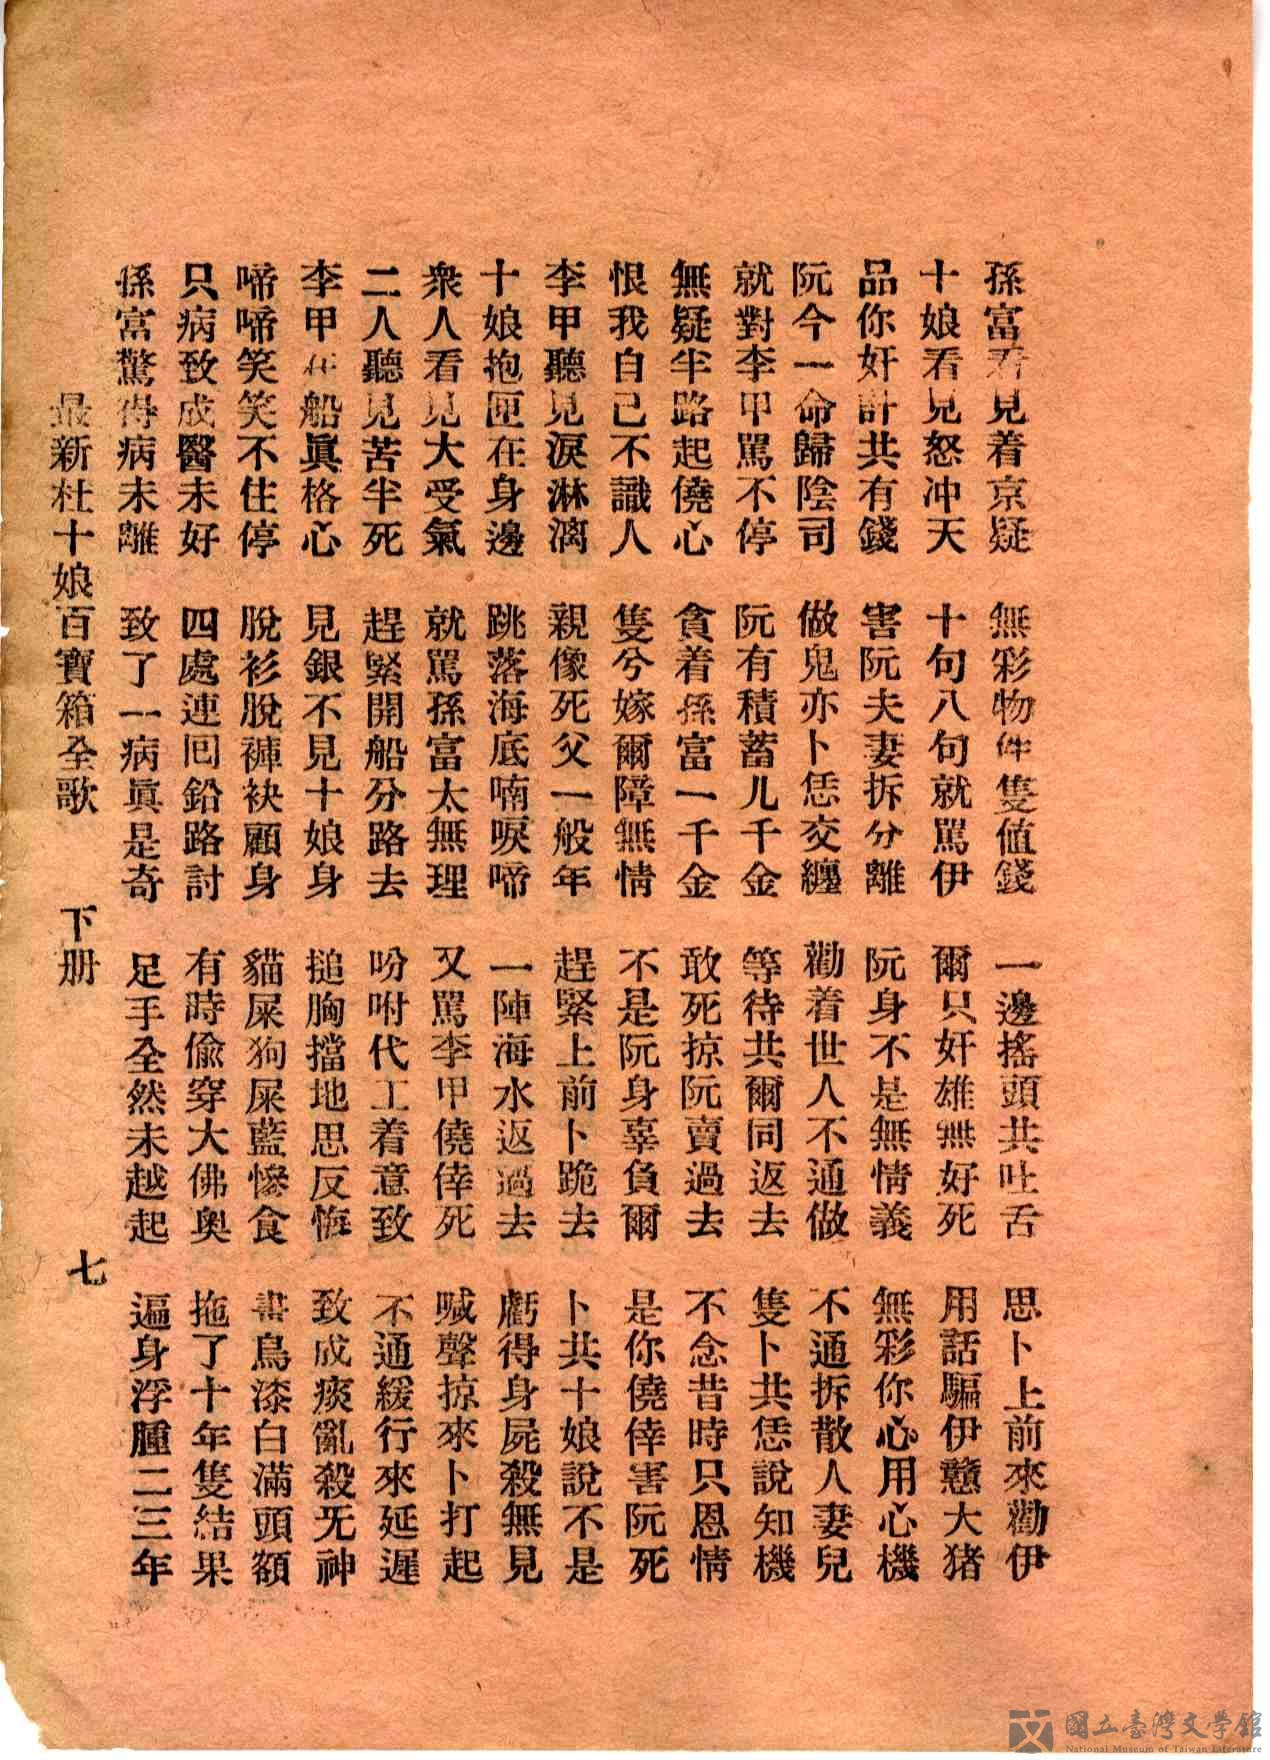 孫富看見着京疑　無彩物件隻值錢　一邊搖頭共吐舌　思卜上前來勸伊
十娘看見怒冲天　十句八句就罵伊　爾只奸雄無好死　用話騙伊戇大猪
品你奸計共有錢　害阮夫妻拆分離　阮身不是無情義　無彩你心用心機
阮今一命歸陰司　做鬼亦卜恁交纏　勸着世人不通做　不通拆散人妻兒
就對李甲罵不停　阮有積蓄儿千金　等待共爾同返去　隻卜共恁說知機
無疑半路起僥心　貪着孫富一千金　敢死掠阮賣過去　不念昔時只恩情
恨我自己不識人　隻兮嫁爾障無情　不是阮身辜負爾　是你僥倖害阮死
李甲聽見淚淋漓　親像死父一般年　趕緊上前卜跪去　卜共十娘說不是
十娘抱匣在身邊　跳落海底喃唳啼　一陣海水返過去　虧得身屍殺無見
衆人看見大受氣　就罵孫富太無理　又罵李甲僥倖死　喊聲掠來卜打起
二人聽見苦半死　趕緊開船分路去　吩咐代工着意致　不通緩行來延遲
李甲在船眞格心　見銀不見十娘身　搥胸擋地思反悔　致成痰亂殺无神
啼啼笑笑不住停　脫衫脫褲袂顧身　貓屎狗屎藍慘食　畫鳥漆白滿頭額
只病致成醫未好　四處連囘鉛路討　有時偸穿大佛奥　拖了十年隻結果
孫富驚得病未離　致了一病眞是奇　足手全然未越起　逼身浮腫二三年
最新杜十娘百寶箱全歌　下册　七
國立臺灣文學館
National Museum of Taiwan Literature